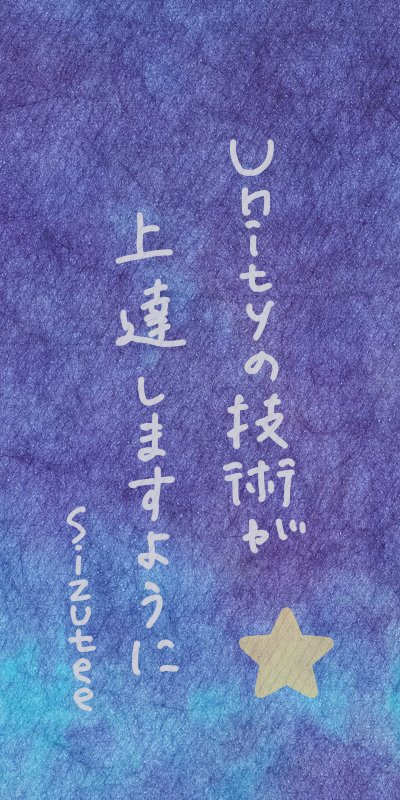 Unityの技術が
上達しますように
Sizutee